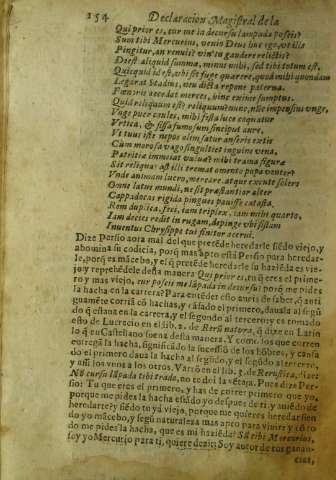 154 Declaracion Magistral de la
Qui prior es, cur me in decursu lampada poscis?
Sum tibi Mercurius, venio Deus huc ego, ut ille
Pingitur, an renuis? vin'tu gaudere relictis?
Deest aliquid summæ, minui mihi, sed tibi totum est.
Quicquid id est, ubi sit fuge quærere, quod mihi quondam
Legarat Stadius, neu dicta repone paterna.
Fœnoris accedat merces, hinc exime sumptus.
Quid reliquum est? reliquum? nunc, nunc impensius unge,
Unge puer caules, mihi festa luce coquatur
Urtica, & fissa fumosum sinciput aure,
Ut tuus iste nepos olim satur anseris extis
Cum morosa vago singultiet inguine vena,
Patritiæ immeiat vulvæ? mihi trama figuræ
Sit reliqua? ast illi tremat omento popa venter?
Vende animam lucro, mercare, atque excute solers
Omne latus mundi, ne sit præstantior alter
Cappadocas rigida pingues pavisse catasta.
Rem duplica, feci, iam triplex, iam mihi quarto,
Iam decies redit in rugam, depinge ubi sistam
Inventus Chrysippe tui finitor acervi.
Dize Persio aora mal del que pretēde heredarle siēdo viejo, y
abomina su codicia, porq̄ mas apto està Persio para heredar-
le, porq̄ es mācebo, y el q̄ pretēde heredarle la haziēda es vie-
jo y reprehēdele desta manera Qui prior es, tu q̄ eres el prime-
ro y mas viejo, cur poscis me lāpada in decursu? porq̄ me pides
la hacha en la carrera? Para entēder esto auris de saber, q̄ anti
guamēte corriā cō hachas, y cāsado el primero, dauala al segū
do q̄ estaua en la carrera, y el segundo al tercero; y es tomado
esto de Lucrecio en el lib. 2. de Rerū natura, q̄ dize en Latin
lo q̄ en Castellano suena desta manera. Y como los que corren
entregā la hacha, significādo la sucessiō de los hōbres, y cansa
do el primero daua la hacha al segūdo, y el segūdo al tercero,
y assi los vnos a los otros. Varrō en el lib. 3. de Re rustica, dize:
Nō cursu lāpada tibi trado, no te doi la vētaja. Pues dize Per-
sio: Tu que eres el primero, y has de correr primero que yo,
porque me pides la hacha estādo yo despues de ti, y auiēdo de
heredarte? y siēdo tu yà viejo, porque me quieres heredar sien
do yo mācebo, y segū naturaleza mas apto para viuir y cōto
do me pides la hacha, que es mi haziēda? Sū tibi Mercurius,
soy yo Mercurio para ti, quiere dezir: Soy autor de tus ganan-
cias,